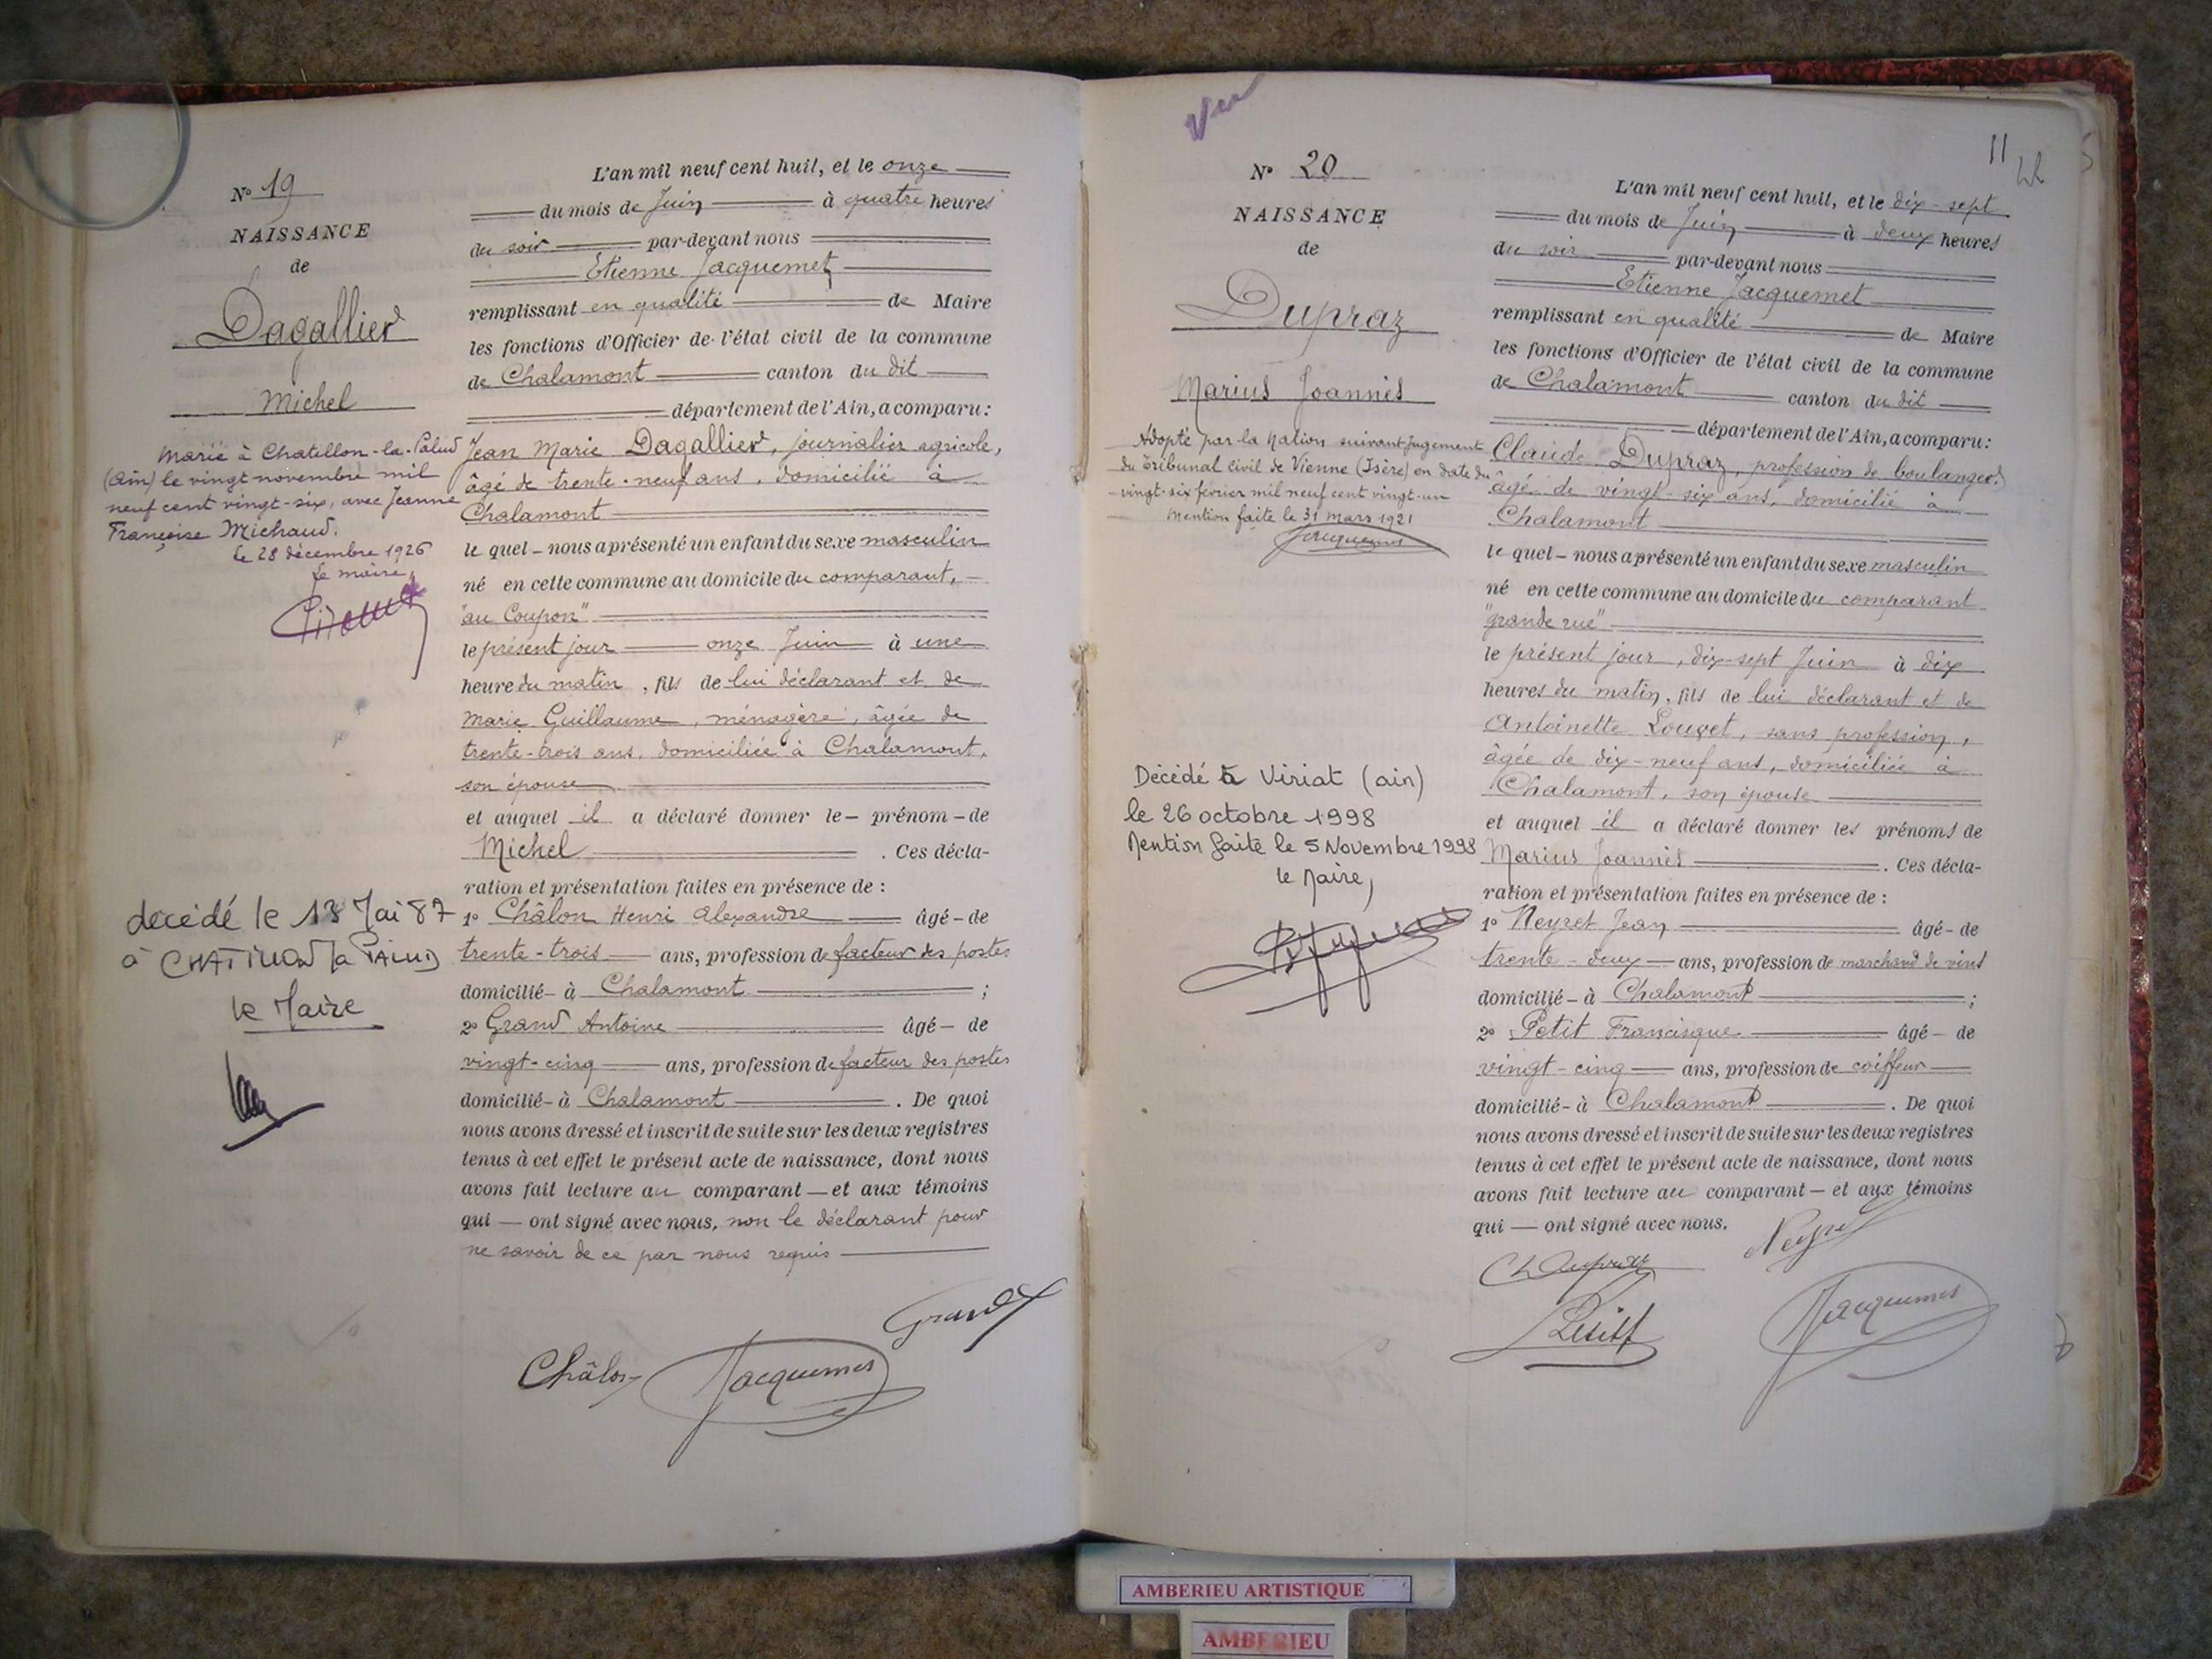 N° 19
NAISSANCE
de
Dagallier
Michel
Marié à Chatillon-la-Palud
(Ain) le vingt novembre mil
neuf cent vingt-six, avec Jeanne
Françoise Michaud.
le 28 décembre 1926
Le maire,
décédé le 13 Mai 87
à CHATILLON la PALUD
le Maire
L'an mil neuf cent huit, et le onze
du mois de Juin à quatre heures
du soir par-devant nous
Etienne Jacquemet
remplissant en qualité de Maire
les fonctions d'Officier de l'état civil de la commune
de Chalamont canton du dit
département de l'Ain, a comparu:
Jean Marie Dagallier, journalier agricole,
âgé de trente-neuf ans, domicilié à
Chalamont
lequel nous a présenté un enfant du sexe masculin
né en cette commune au domicile du comparant,
"au Coupon"
le présent jour onze Juin à une
heure du matin, fils de lui déclarant et de
Marie Guillaume, ménagère, âgée de
trente-trois ans, domiciliée à Chalamont,
son épouse
et auquel il a déclaré donner le prénom de
Michel. Ces décla-
ration et présentation faites en présence de :
1° Châlon Henri Alexandre âgé de
trente-trois ans, profession de facteur des postes
domicilié à Chalamont ;
2° Grand Antoine âgé de
vingt-cinq ans, profession de facteur des postes
domicilié à Chalamont. De quoi
nous avons dressé et inscrit de suite sur les deux registres
tenus à cet effet le présent acte de naissance, dont nous
avons fait lecture au comparant et aux témoins
qui ont signé avec nous, non le déclarant pour
ne savoir de ce par nous requis
Grand
Châlon Jacquemet
Vu
11
N° 20
NAISSANCE
de
Dupraz
Marius Joannès
Adopté par la Nation suivant jugement
du Tribunal Civil de Vienne (Isère) en date du
vingt-six février mil neuf cent vingt-un
Mention faite le 31 mars 1921
Jacquemet
Décédé à Viriat (ain)
le 26 octobre 1998
Mention faite le 5 Novembre 1998
le Maire,
L'an mil neuf cent huit, et le dix-sept
du mois de Juin à deux heures
du soir par-devant nous
Etienne Jacquemet
remplissant en qualité de Maire
les fonctions d'Officier de l'état civil de la commune
de Chalamont canton du dit
département de l'Ain, a comparu:
Claude Dupraz, profession de boulanger,
âgé de vingt-six ans, domicilié à
Chalamont
lequel nous a présenté un enfant du sexe masculin
né en cette commune au domicile du comparant
"grande rue"
le présent jour, dix-sept Juin à dix
heures du matin, fils de lui déclarant et de
Antoinette Louvet, sans profession,
âgée de dix-neuf ans, domiciliée à
Chalamont, son épouse
et auquel il a déclaré donner les prénoms de
Marius Joannès. Ces décla-
ration et présentation faites en présence de :
1° Neyret Jean âgé de
trente-deux ans, profession de marchand de vins
domicilié à Chalamont ;
2° Petit Francisque âgé de
vingt-cinq ans, profession de coiffeur
domicilié à Chalamont. De quoi
nous avons dressé et inscrit de suite sur les deux registres
tenus à cet effet le présent acte de naissance, dont nous
avons fait lecture au comparant et aux témoins
qui ont signé avec nous.
Neyret
Cl Dupraz
Petit
Jacquemet
AMBERIEU ARTISTIQUE
AMBERIEU